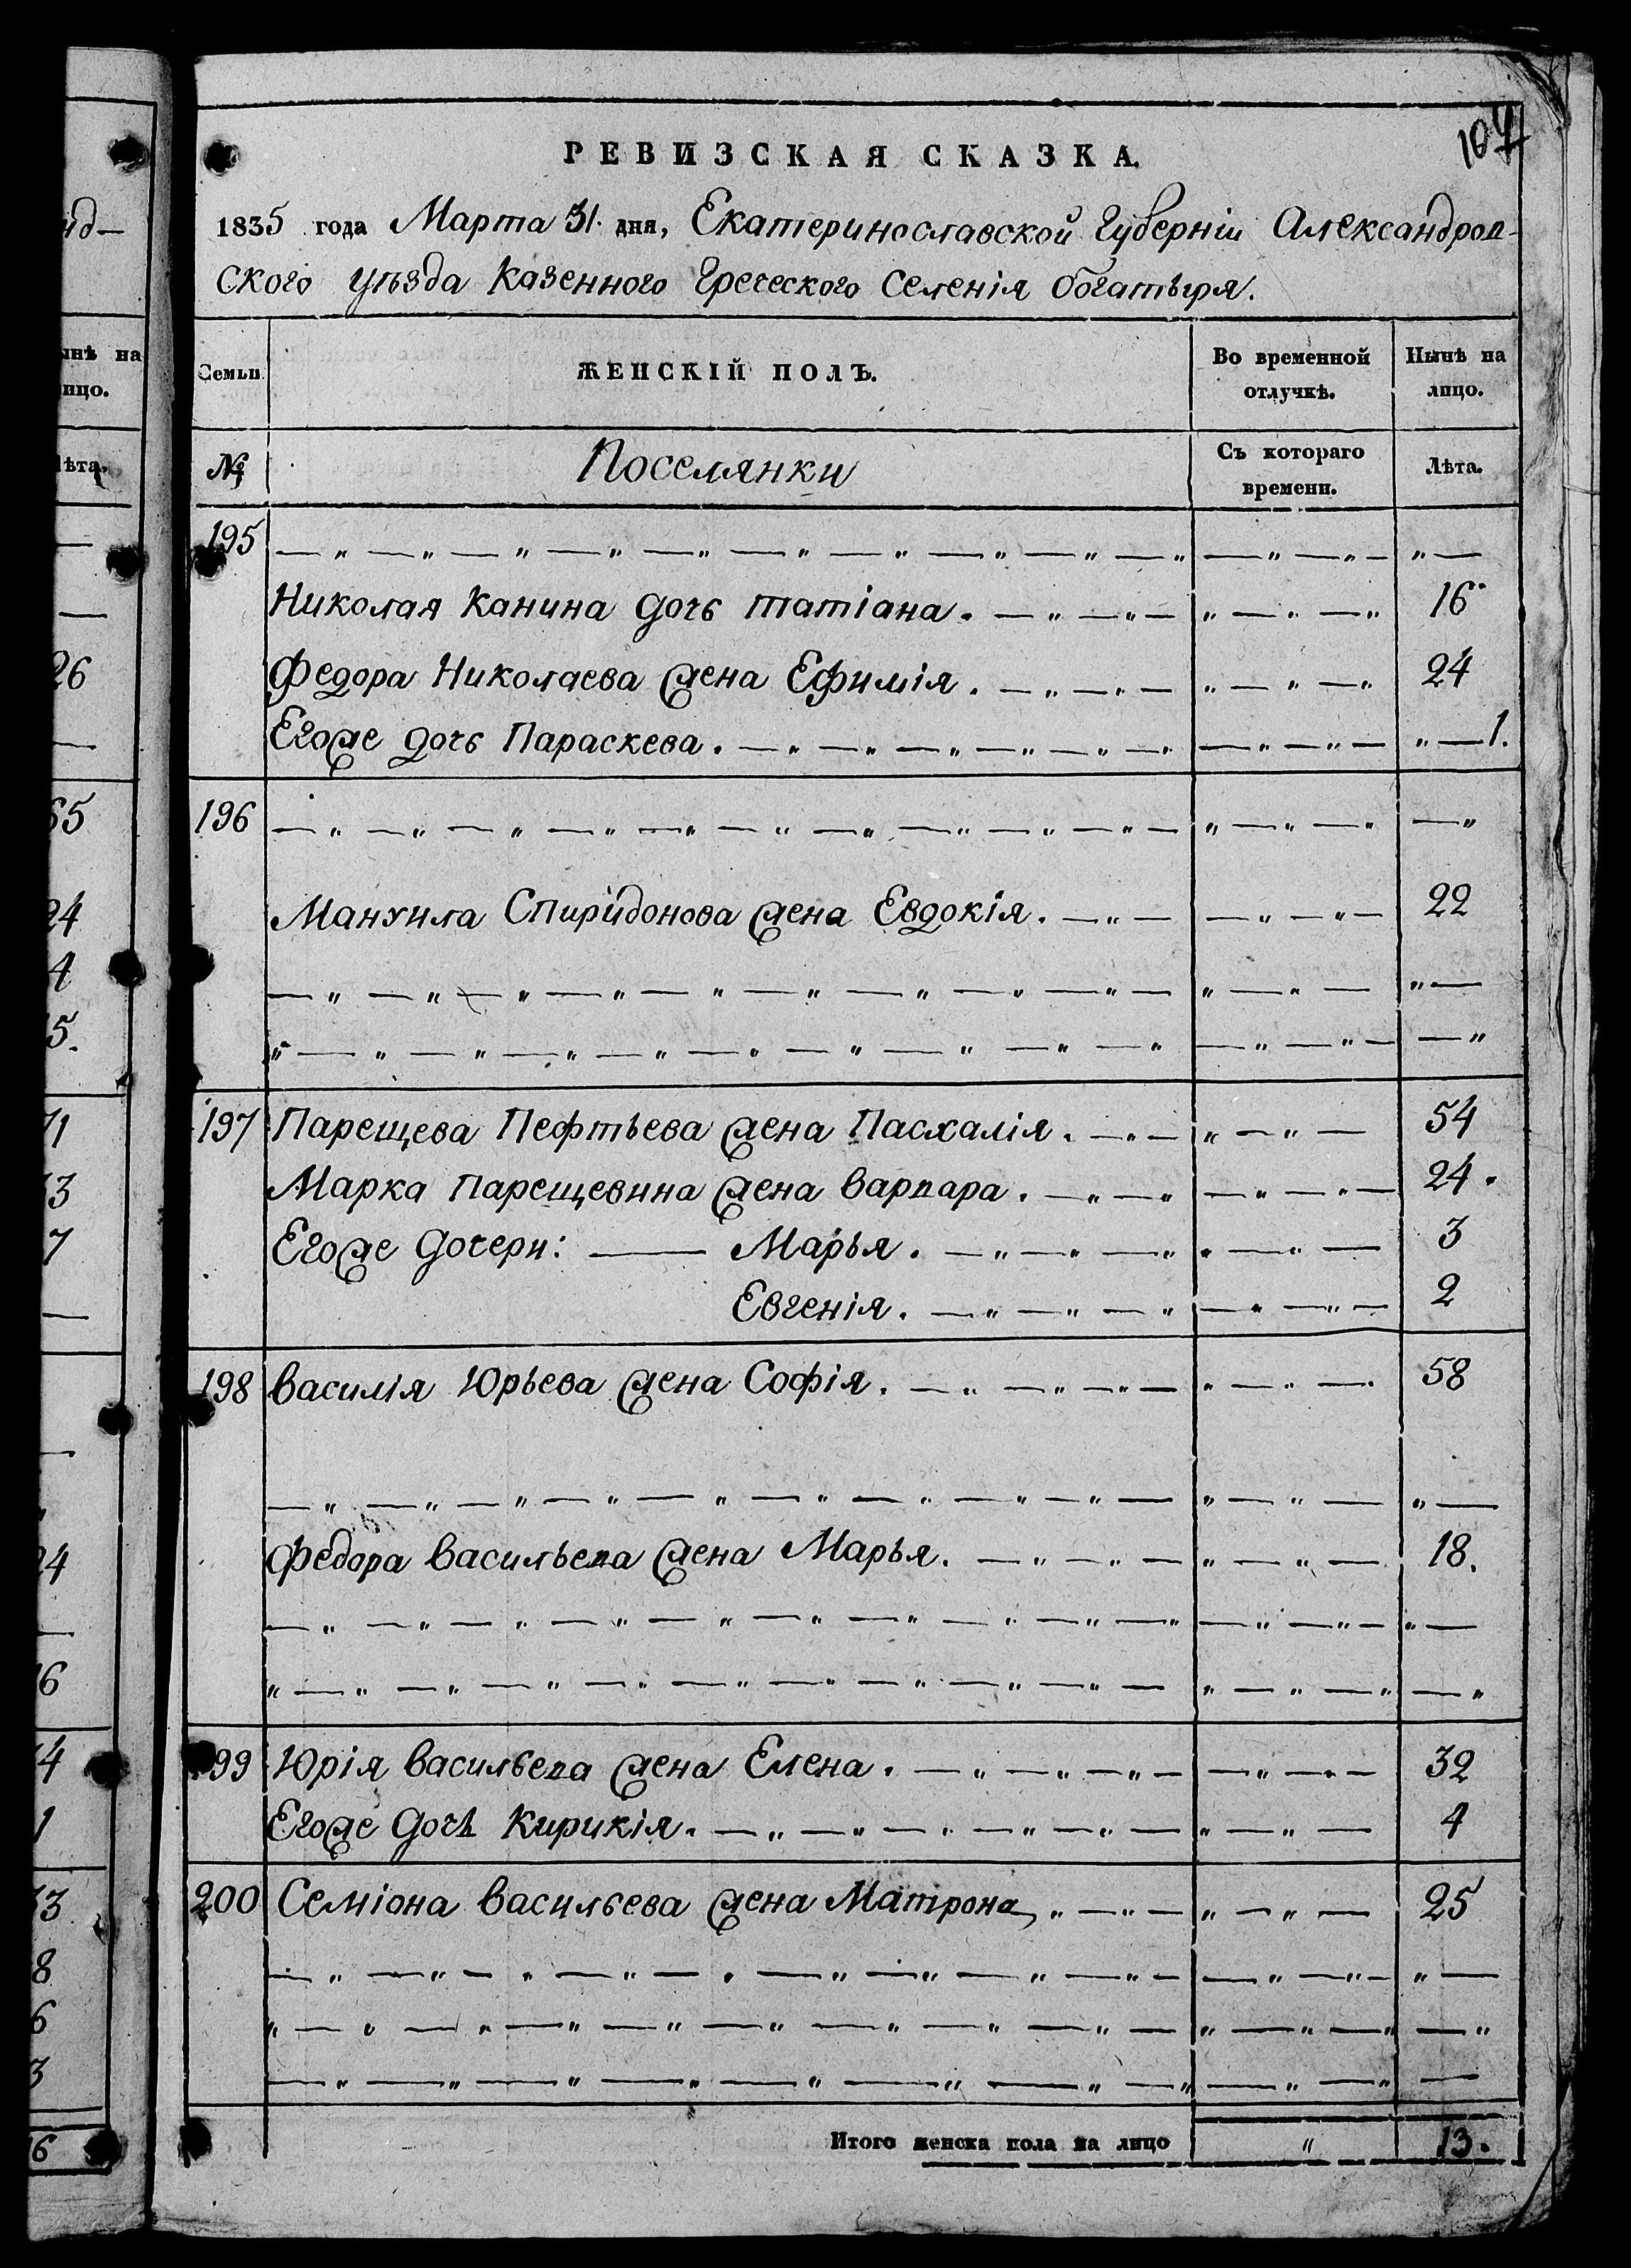 107
РЕВИЗСКАЯ СКАЗКА.
1835 года Марта 31. дня, Екатеринославской Губерніи Александров-
ского уѣзда Казенного Греческого Селенія Богатыря.
Семьи. ЖЕНСКІЙ ПОЛЪ. Во временной отлучкѣ. Нынѣ на лицо.
№ Поселянки Съ котораго времени. Лѣта.
195
Николая Канина дочь Татіана. 16
Федора Николаева жена Ефимія. 24
Егоже дочь Параскева. 1.
196
Мануила Спиридонова жена Евдокія. 22
197 Парещева Пефтьева жена Пасхалія. 54
Марка Парещевина жена Варвара. 24.
Егоже Дочери: Марья. 3
Евгенія. 2
198 Василія Юрьева жена Софія. 58
Федора Васильева жена Марья. 18.
199 Юрія Васильева жена Елена. 32
Егоже Дочь Кирикія. 4
200 Семіона Васильева жена Матрона, 25
Итого женска пола на лицо " 13.
нд-
ынѣ на
ицо.
лѣта.
26
65
24
4
5.
71
3
7
24
16
4
1
33
8
6
3
16